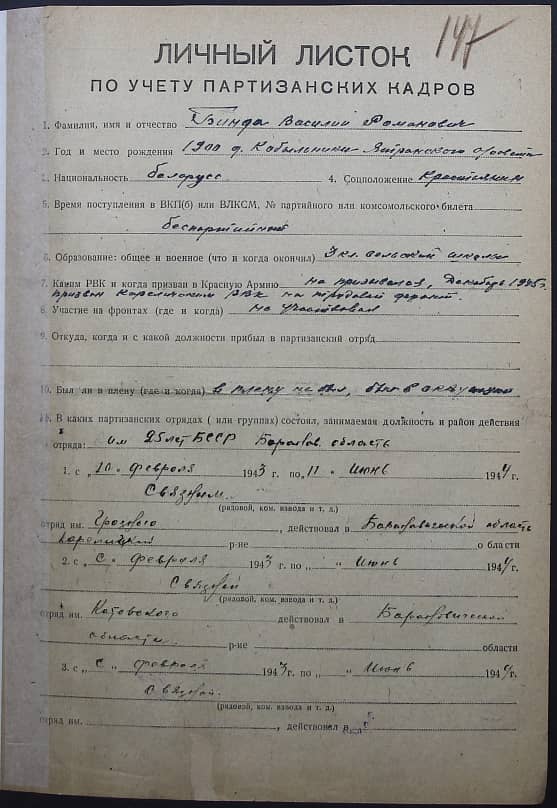 147
ЛИЧНЫЙ ЛИСТОК
ПО УЧЕТУ ПАРТИЗАНСКИХ КАДРОВ
1. Фамилия, имя и отчество Бинда Василий Романович
2. Год и место рождения 1900 д. Кобыльники
3. Национальность белорусс 4. Соцположение Крестьянин
5. Время поступления в ВКП(б) или ВЛКСМ, № партийного или комсомольского билета
беспартийный
6. Образование: общее и военное (что и когда окончил) 3 кл. сельской школы
7. Каким РВК и когда призван в Красную Армию не призывался, Декабрь
призван Кореличским РВК на трудовой фронт.
8. Участие на фронтах (где и когда) не участвовал
9. Откуда, когда и с какой должности прибыл в партизанский отряд
10. Был ли в плену (где и когда) в плену не был, был в
11. В каких партизанских отрядах ( или группах) состоял, занимаемая должность и район действия
отряда: им 25 лет БССР Баранов. область
1. с „10„ февраля 1943 г. по „11„ Июнь 1944 г.
Связным
(рядовой, ком. взвода и т. д.)
отряд им. Грозного , действовал в область
р-не о бласти
2. с „С„ февраля 1943 г. по „ „ Июнь 1944 г.
Связной
(рядовой, ком. взвода и т. д.)
отряд им. Котовского действовал в
области р-не области
3. с „С„ февраля 1943 г. по „ „ Июнь 1944 г.
Связной.
(рядовой, ком. взвода и т. д.)
отряд им. , действовал в